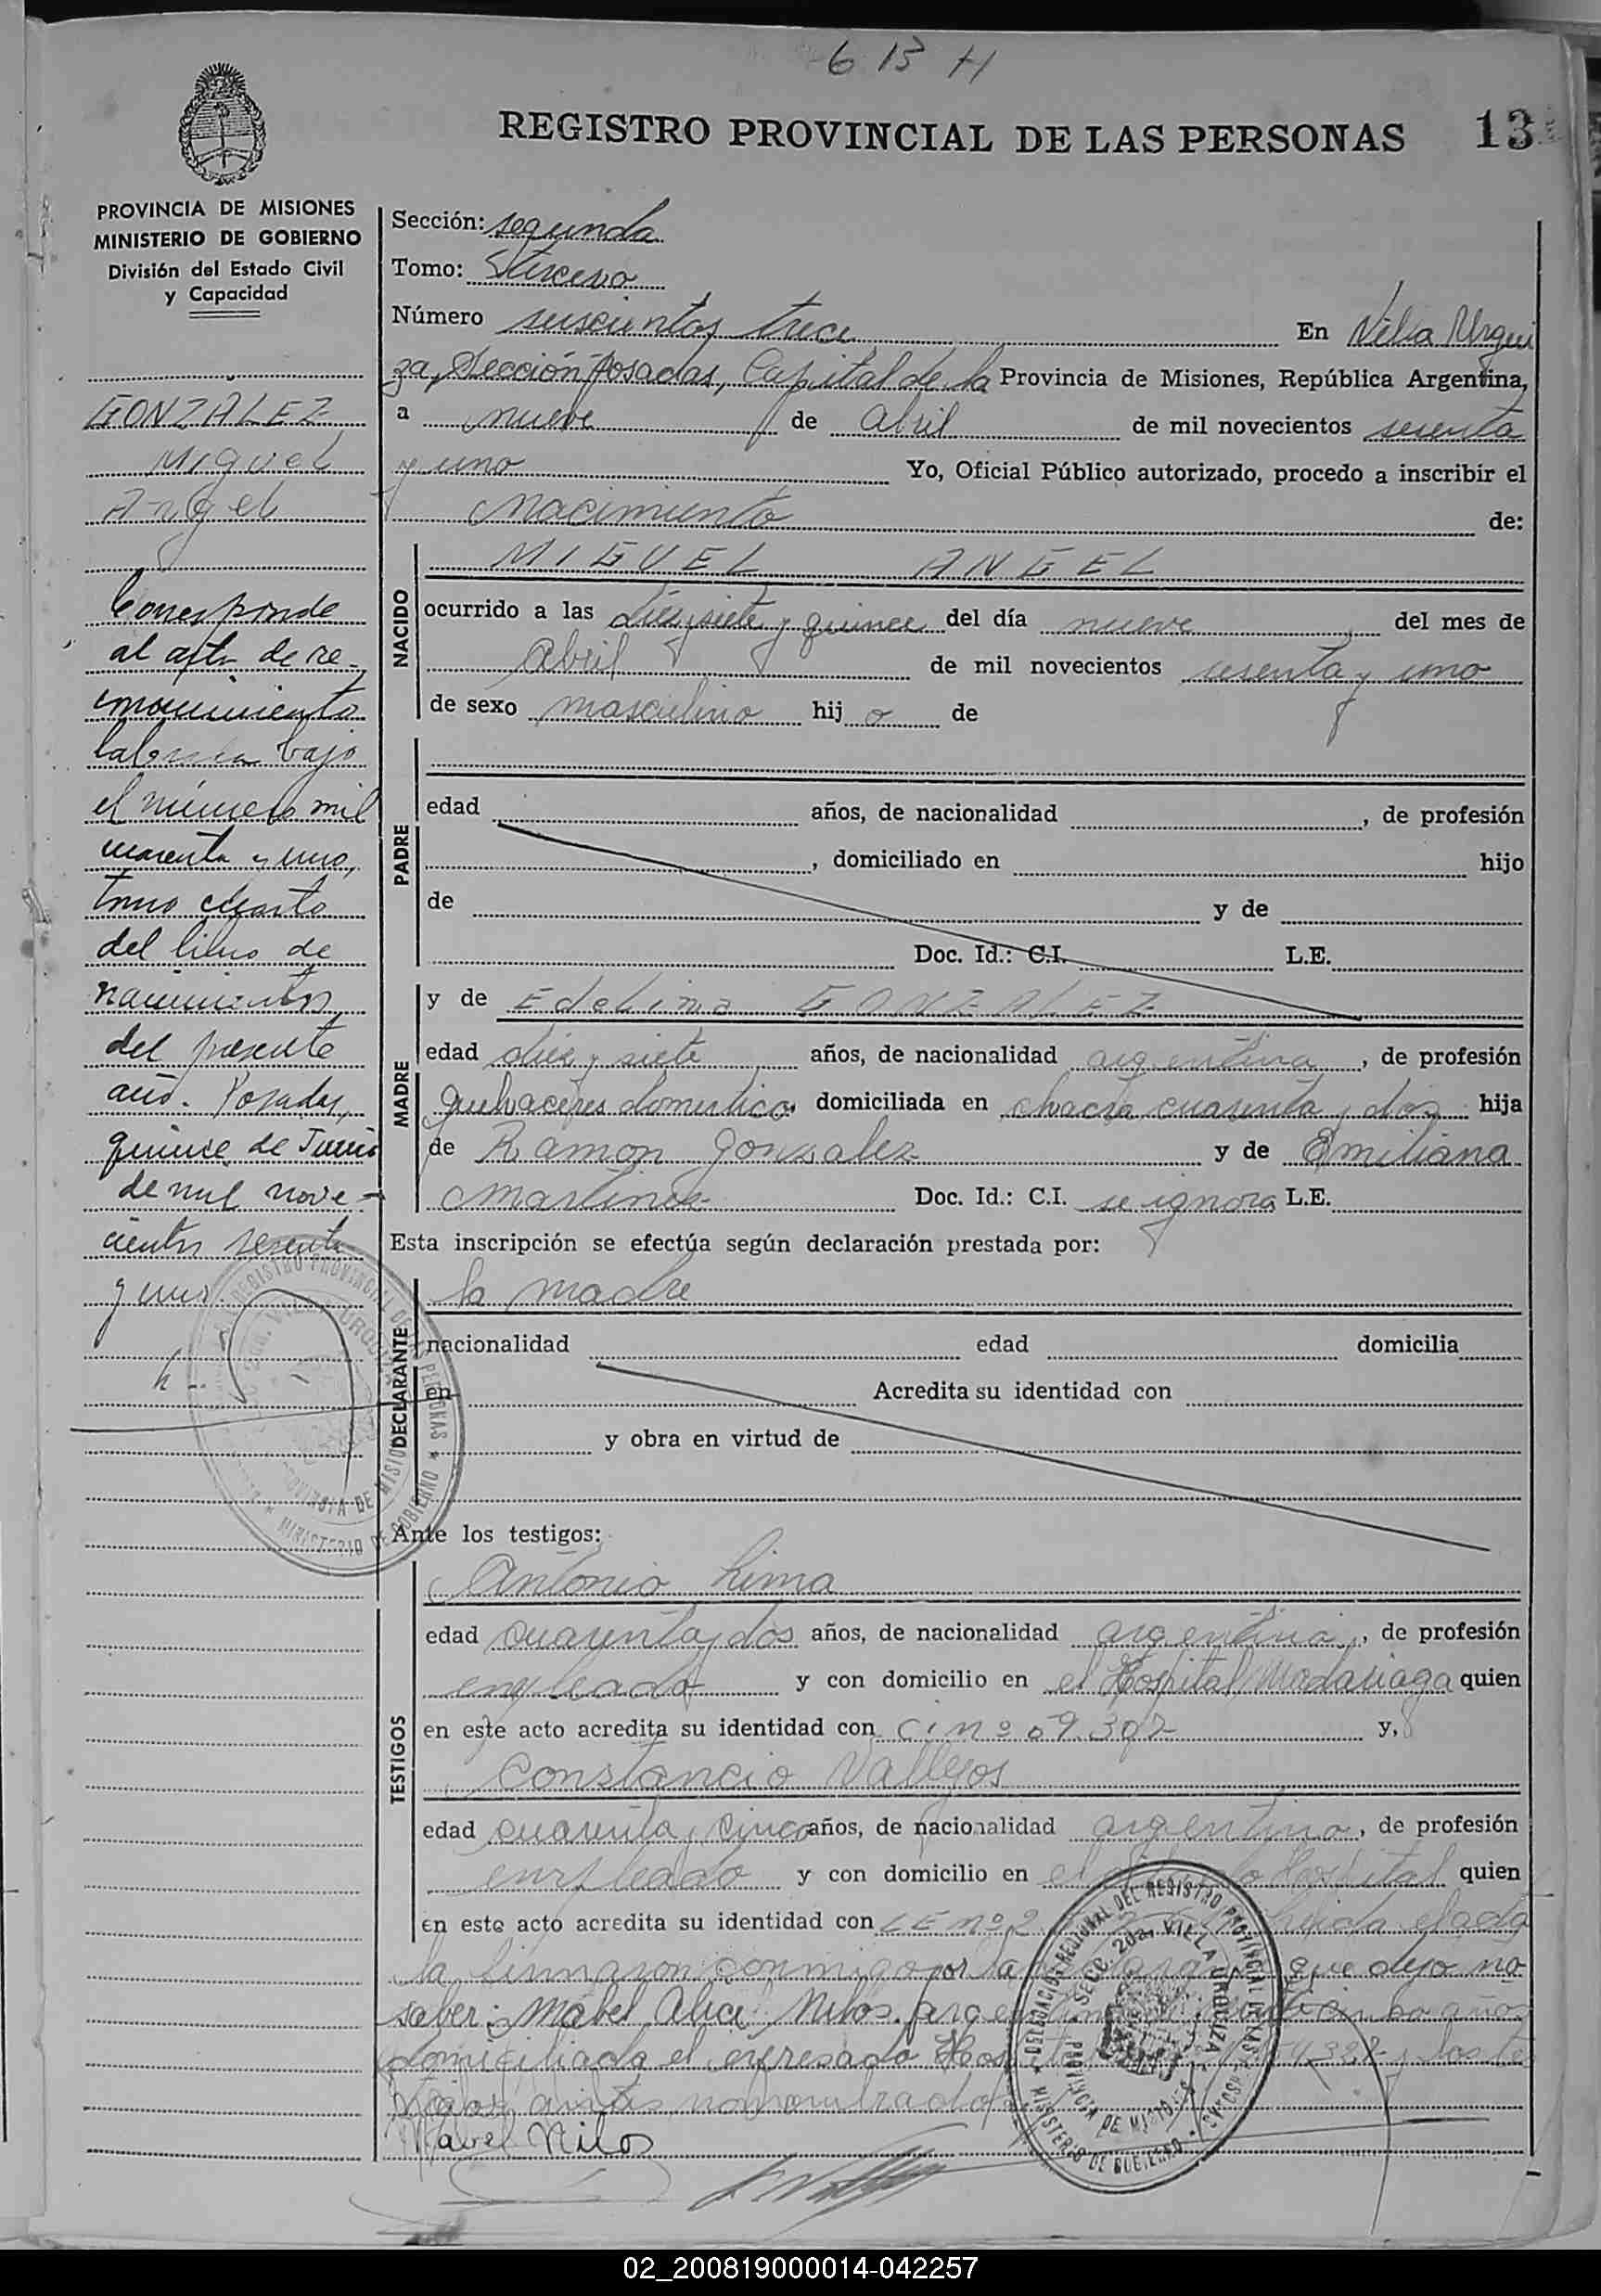 6 13 H
REGISTRO PROVINCIAL DE LAS PERSONAS 13
PROVINCIA DE MISIONES
MINISTERIO DE GOBIERNO
División del Estado Civil
y Capacidad
GONZÁLEZ
Miguel
Angel
Corresponde
al acta de re-
conocimiento
labrada bajo
el número mil
cuarenta y uno,
tomo cuarto
del libro de
nacimientos
del presente
año. Posadas,
quince de Junio
de mil nove-
cientos sesenta
y uno
Sección: segunda
Tomo: Tercero
Número seiscientos trece En Villa Urqui
za, Sección Posadas, Capital de la Provincia de Misiones, República Argentina,
a nueve de Abril de mil novecientos sesenta
y uno Yo, Oficial Público autorizado, procedo a inscribir el
nacimiento de:
NACIDO
MIGUEL ANGEL
ocurrido a las diez y siete y quince del día nueve del mes de
Abril de mil novecientos sesenta y uno
de sexo masculino hij o de
PADRE
edad años, de nacionalidad , de profesión
, domiciliado en hijo
de y de
Doc. Id.: C.I. L.E.
MADRE
y de Edelina GONZALEZ
edad diez y siete años, de nacionalidad argentina, de profesión
quehaceres domestico domiciliada en chacra cuarenta y dos hija
de Ramon Gonzalez y de Emiliana
Martinez Doc. Id.: C.I. se ignora L.E.
Esta inscripción se efectúa según declaración prestada por:
DECLARANTE
la madre
nacionalidad edad domicilia
en Acredita su identidad con
y obra en virtud de
Ante los testigos:
TESTIGOS
Antonio Lima
edad cuarenta y dos años, de nacionalidad argentina, de profesión
empleado y con domicilio en el Hospital Madariaga quien
en este acto acredita su identidad con C.I. nº 69.307 y,
Constancio Vallejos
edad cuarenta y cinco años, de nacionalidad argentino, de profesión
empleado y con domicilio en el Hospital quien
en este acto acredita su identidad con LE nº 2 leida el acta
la firmaron conmigo por la que dijo no
saber: Mabel Alice Nilos, años
domiciliada el expresado y los tes
tigos antes nombrados
Mavel Nilos
DELEGACION REGIONAL DEL REGISTRO PROVINCIAL DE LAS PERSONAS
SECC. 2da. VILLA URQUIZA
PROVINCIA DE MISIONES
MINISTERIO DE GOBIERNO
02_200819000014-042257